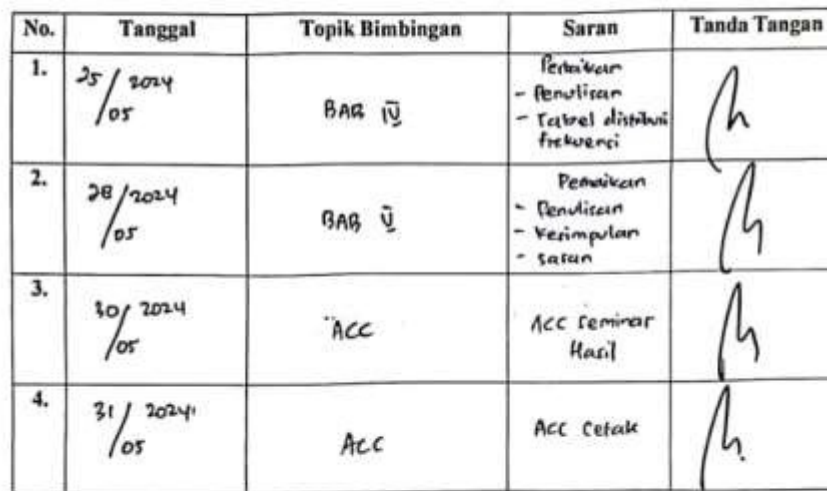 No. Tanggal Topik Bimbingan Saran Tanda Tangan
1. 25/05 2024 BAB IV Perbaikan
- Penulisan
- Tabel distribusi
frekuensi
2. 28/05 2024 BAB V Perbaikan
- Penulisan
- Kesimpulan
- saran
3. 30/05 2024 ACC ACC Seminar
Hasil
4. 31/05 2024 ACC ACC Cetak